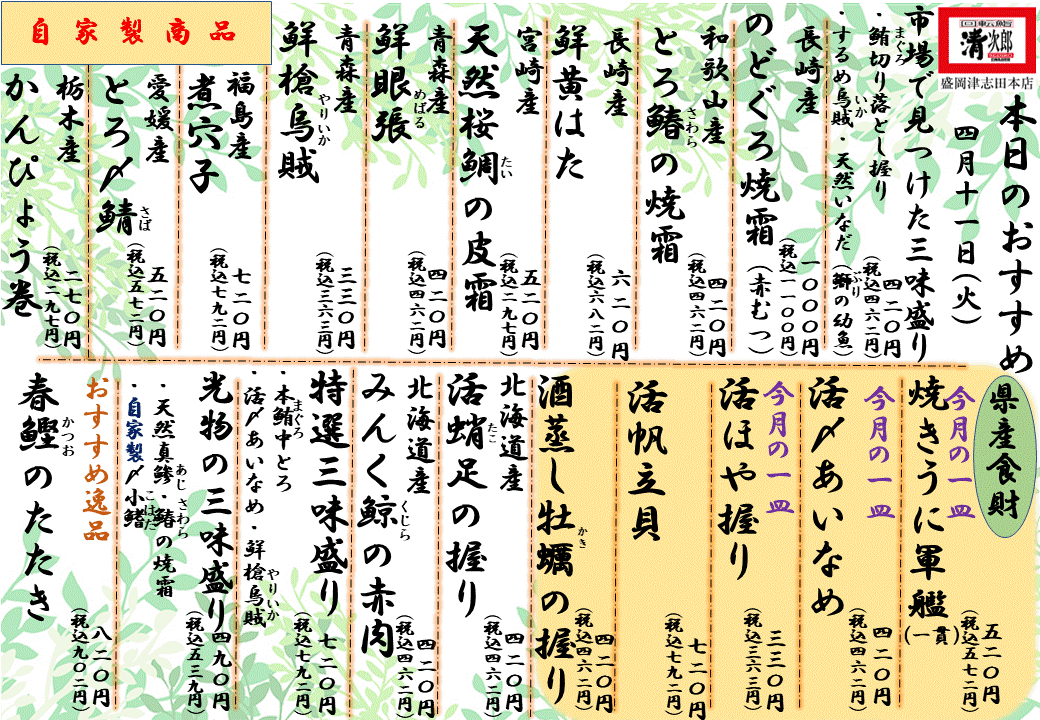 回転鮨
清次郎
盛岡津志田本店
本日のおすすめ
四月十一日(火)
市場で見つけた三味盛り
・鮪切り落とし握り
まぐろ
・するめ烏賊・天然いなだ
いか
(鰤の幼魚)
ぶり
四二〇円
(税込四六二円)
長崎産
のどぐろ焼霜(赤むつ)
一〇〇〇円
(税込一一〇〇円)
和歌山産
とろ鰆の焼霜
さわら
四二〇円
(税込四六二円)
長崎産
鮮黄はた
六二〇円
(税込六八二円)
宮崎産
天然桜鯛の皮霜
たい
五二〇円
(税込二九七円)
青森産
鮮眼張
めばる
四二〇円
(税込四六二円)
青森産
鮮槍烏賊
やりいか
三三〇円
(税込三六三円)
自家製商品
福島産
煮穴子
七二〇円
(税込七九二円)
愛媛産
とろ〆鯖
さば
五二〇円
(税込五七二円)
栃木産
かんぴょう巻
二七〇円
(税込二九七円)
県産食財
今月の一皿
焼きうに軍艦(一貫)
五二〇円
(税込五七二円)
今月の一皿
活〆あいなめ
四二〇円
(税込四六二円)
今月の一皿
活ほや握り
三三〇円
(税込三六三円)
活帆立貝
七二〇円
(税込七九二円)
酒蒸し牡蠣の握り
かき
四二〇円
(税込四六二円)
北海道産
活蛸足の握り
たこ
四二〇円
(税込四六二円)
北海道産
みんく鯨の赤肉
くじら
四二〇円
(税込四六二円)
特選三味盛り
・本鮪中とろ
まぐろ
・活〆あいなめ・鮮槍烏賊
やりいか
七二〇円
(税込七九二円)
光物の三味盛り
・天然真鯵・鰆の焼霜
あじ さわら
・自家製〆小鰭
こはだ
四九〇円
(税込五三九円)
おすすめ逸品
春鰹のたたき
かつお
八二〇円
(税込九〇二円)